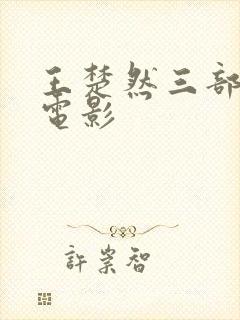 王楚然三部
電影
許崇智